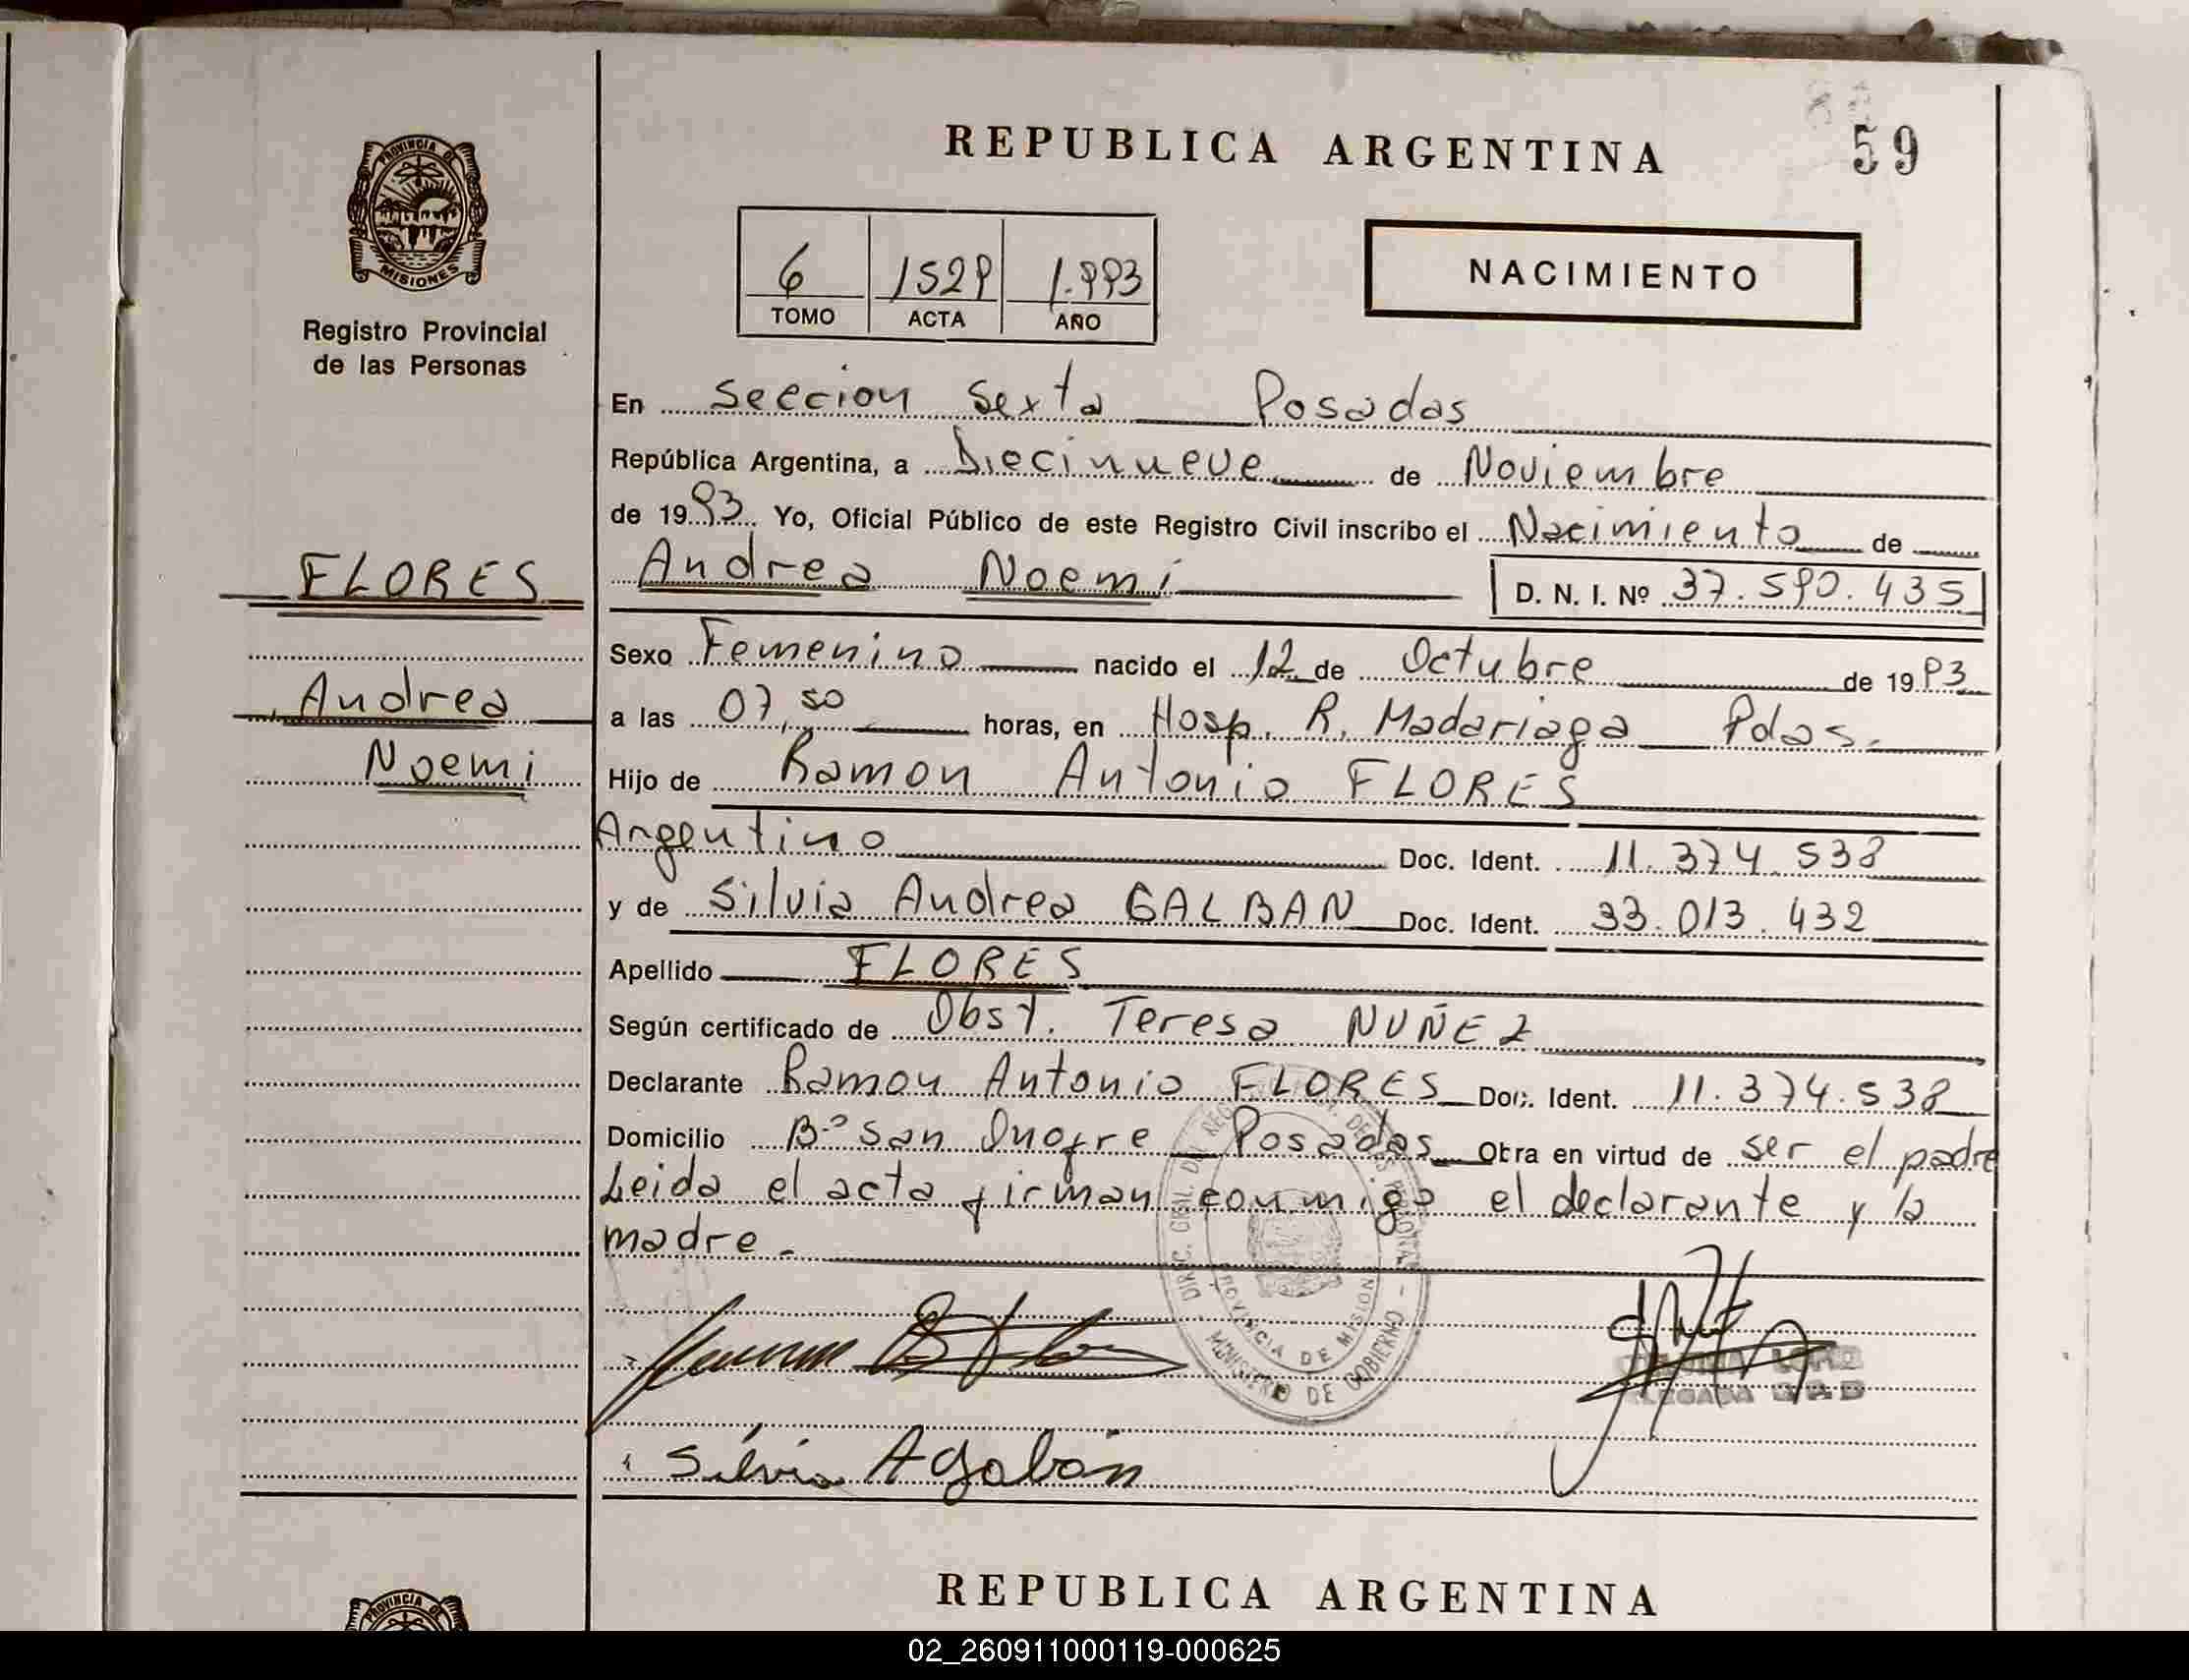 REPUBLICA ARGENTINA
59
PROVINCIA DE
MISIONES
Registro Provincial
de las Personas
6 1529 1.993
TOMO ACTA AÑO
NACIMIENTO
En Seccion Sexta Posadas
República Argentina, a Diecinueve de Noviembre
de 1993. Yo, Oficial Público de este Registro Civil inscribo el Nacimiento de
FLORES
Andrea Noemi D. N. I. Nº 37.590.435
Sexo Femenino nacido el 12 de Octubre de 1993
Andrea
a las 07,50 horas, en Hosp. R. Madariaga Pdas.
Noemi
Hijo de Ramon Antonio FLORES
Argentino Doc. Ident. 11.374.538
y de Silvia Andrea GALBAN Doc. Ident. 33.013.432
Apellido FLORES
Según certificado de Obst. Teresa NUÑEZ
Declarante Ramon Antonio FLORES Doc. Ident. 11.374.538
Domicilio Bº San Onofre Posadas Obra en virtud de ser el padre
Leida el acta firman conmigo el declarante y la
madre.
MINISTERIO DE GOBIERNO
PROVINCIA DE MISIONES
Silvia A galbán
REPUBLICA ARGENTINA
PROVINCIA DE
02_260911000119-000625